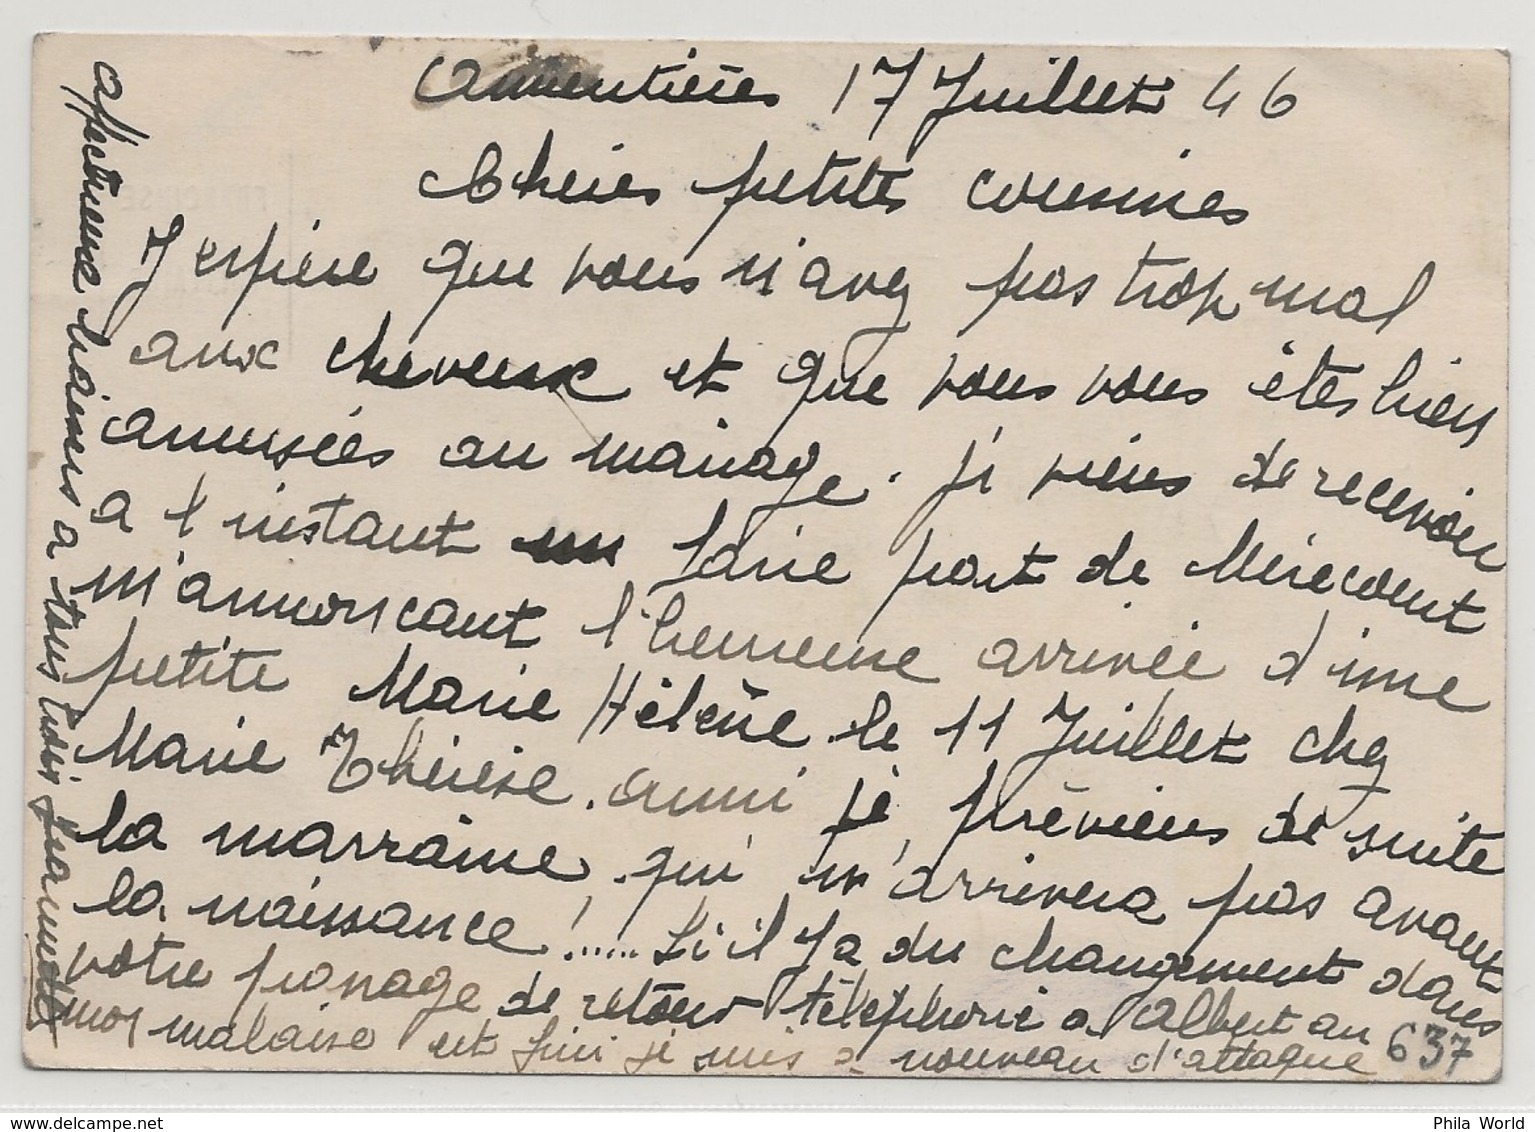 Armentières 17 Juillet 46
Chères petites cousines
J'espère que vous n'avez pas trop mal
aux cheveux et que vous vous êtes bien
amusées au mariage. Je viens de recevoir
a l'instant un faire part de Mirecourt
m'annonçant l'heureuse arrivée d'une
petite Marie Hélène le 11 Juillet chez
Marie Thérèse. aussi je préviens de suite
la marraine, qui n'arrivera pas avant
la naissance !..... Si il y a du changement dans
votre passage de retour téléphone a Albert au 637
mon malaise est fini je suis a nouveau d'attaque
affectueux baisers a tous
FRANÇAISE
Phila World